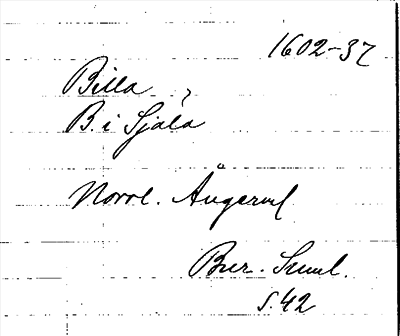 1602-37
Billa
B. i Själa
Norrl. Ångerml
Bur. Suml.
s. 42